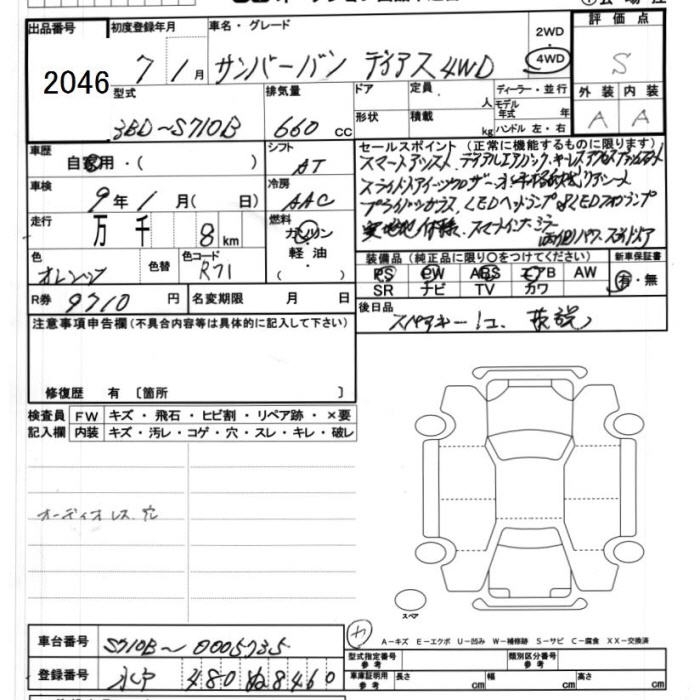 出品番号 初度登録年月 車名・グレード 2WD 評価点
2046 7 1月 サンバーバン ディアス4WD 4WD S
型式 排気量 ドア 定員 人 ディーラー・並行 外装 内装
3BD-S710B 660 cc 形状 積載 kg モデル年式 年 ハンドル 左・右 A A
車歴 シフト セールスポイント (正常に機能するものに限ります)
自家用・( ) AT スマートアシスト、デュアルエアバッグ、キーレスアクセスプッシュスタート
車検 冷房
9年1月( 日) AAC
走行 燃料 プライバシーガラス、LEDヘッドランプ&LEDフォグランプ
万 千 8 km ガソリン 軽油 スマートインナーミラー
色 色替 色コード ・( ) 両側パワースライドドア
オレンジ R71 装備品 (純正品に限り○をつけてください) 新車保証書
PS PW ABS エアB AW 有・無
R券 9710 円 名変期限 月 日 SR ナビ TV カワ
注意事項申告欄(不具合内容等は具体的に記入して下さい) 後日品
スペアキー1コ、取説
修復歴 有 〔箇所 〕
検査員 FW キズ・飛石・ヒビ割・リペア跡・×要
記入欄 内装 キズ・汚レ・コゲ・穴・スレ・キレ・破レ
オーディオレス穴
スペア
車台番号 S710B-0005735
A-キズ E-エクボ U-凹み W-補修跡 S-サビ C-腐食 XX-交換済
型式指定番号 参考 類別区分番号 参考
登録番号 水戸 480 ぬ 8460 車庫証明用 参考 長さ cm 幅 cm 高さ cm